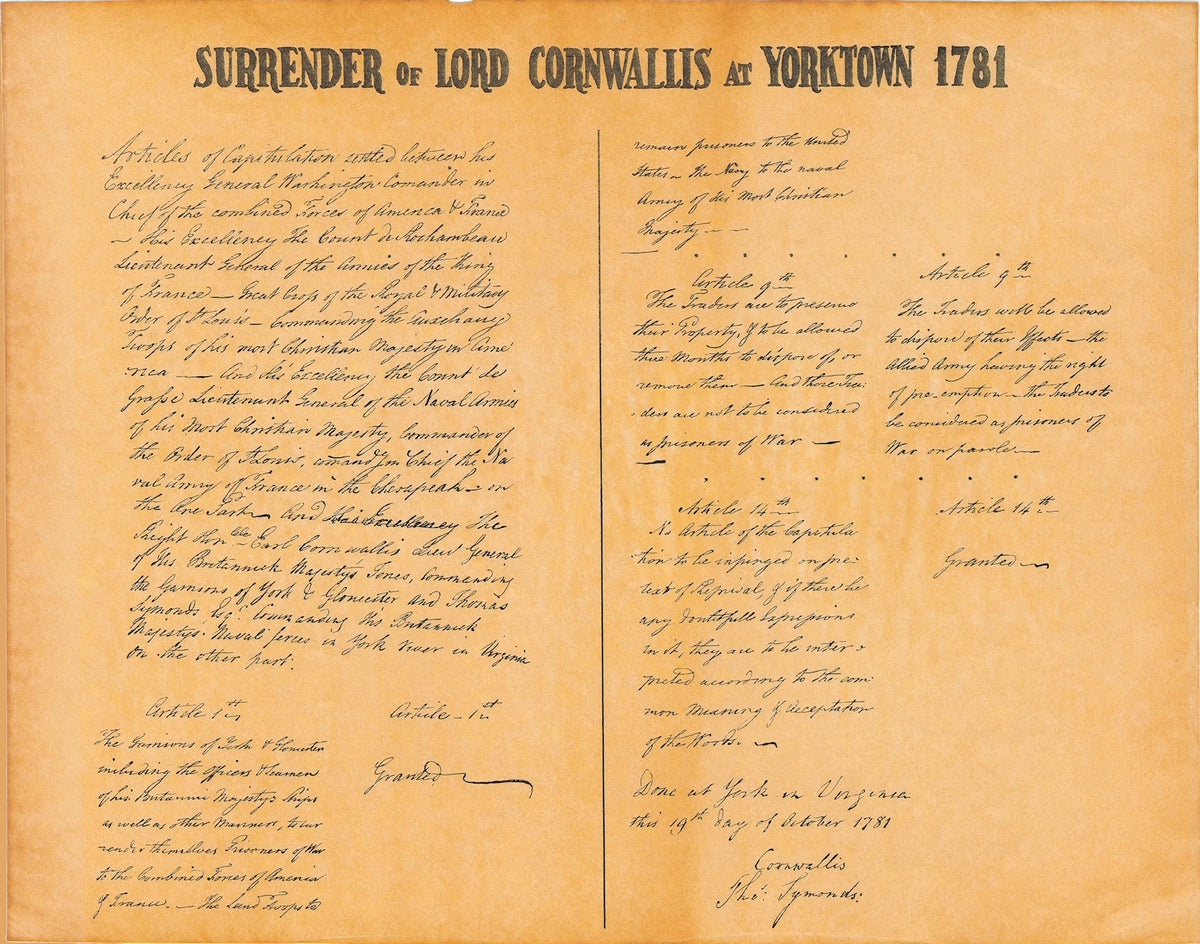 SURRENDER OF LORD CORNWALLIS AT YORKTOWN 1781
Articles of Capitulation settled between his
Excellency General Washington Comander in
Chief of the combined Forces of America & France
— His Excellency The Count de Rochambeau
Lieutenant General of the Armies of the King
of France — Great Cross of the Royal & Military
Order of St Louis — Commanding the Auxiliary
Troops of his most Christian Majesty in Ame
rica — And His Excellency the Count de
Grasse Lieutenant General of the Naval Armies
of his Most Christian Majesty, Commander of
the Order of St Louis, comandg in Chief the Na
val Army of France in the Chesapeak — on
the One Part — And His Excellency The
Right Honble Earl Cornwallis Lieu General
of His Britannick Majestys Forces, Commanding
the Garrisons of York & Gloucester and Thomas
Symonds Esqr Commanding His Britannick
Majestys Naval forces in York River in Virginia
on the other part.
Article 1st
The Garrisons of York & Gloucester
including the Officers & Seamen
of his Britannic Majestys Ships
as well as other Mariners, to sur
render themselves Prisoners of War
to the Combined Forces of America
& France. — The Land Troops to
Article — 1st
Granted
remain prisoners to the United
States — The Navy to the naval
Army of his Most Christian
Majesty — —
Article 9th
The Traders are to preserve
their Property, & to be allowed
three Months to dispose of, or
remove them — And those Tra:
ders are not to be considered
as prisoners of War —
Article 9th
The Traders will be allowed
to dispose of their Effects — the
Allied Army having the right
of pre-emption — the Traders to
be considered as prisoners of
War on parole —
Article 14th
No Article of the Capitula
tion to be infringed on pre:
text of Reprisal, & if there be
any doubtfull Expressions
in it, they are to be inter:
preted according to the com:
mon Meaning & Acceptation
of the Words. —
Article 14th
Granted —
Done at York in Virginia
this 19th day of October 1781
Cornwallis
Thos: Symonds: